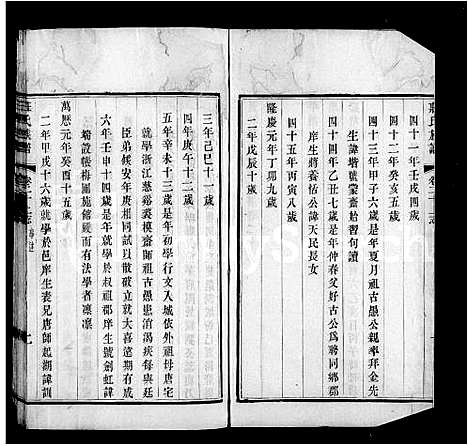 莊氏族譜
四十一年壬戌四歲
四十二年癸亥五歲
四十三年甲子六歲是年夏月祖古愚公親率拜金先
生諱塔號蒙齋始習句讀
四十四年乙丑七歲是年仲春父好古公為聘同鄉鄒
庠生蔣養恬公諱天民長女
四十五年丙寅八歲
隆慶元年丁卯九歲
二年戊辰十歲
三年己巳十一歲
四年庚午十二歲
五年辛未十三歲是年初學行文入城依外祖母唐宅
就學浙江慈谿裘模齋師祖古愚患消渴疾督與廷
臣弟候安年庚相同試以數破立就大喜遂期有成
六年壬申十四歲是年就學於叔祖郡庠生號劍虹諱
塏設帳梅園施館嚴而有法學者凜凜
萬歷元年癸酉十五歲
二年甲戌十六歲就學於邑庠生表兄唐師起湖諱訓